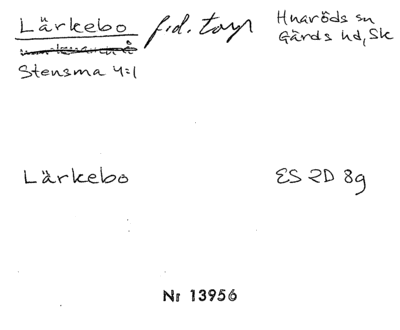 Lärkebo f.d. torp Hnaröds sn
Gärds hd, Sk
Stensma 4:1
Lärkebo ES 2D 8g
Nr 13956